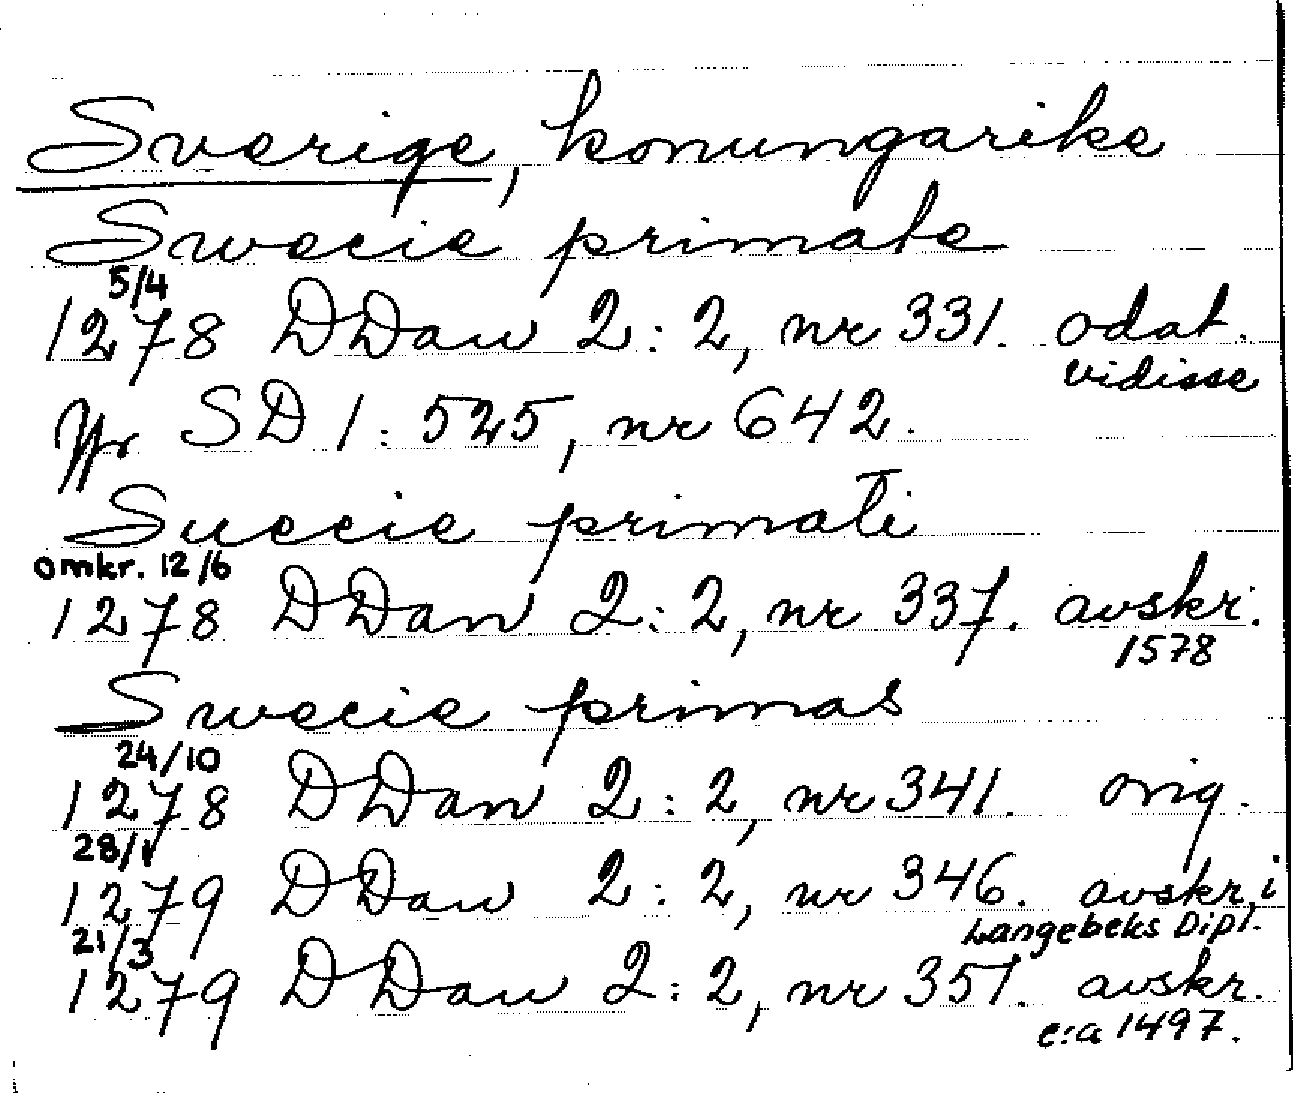 Sverige, konungarike
Swecie primate
5/4
1278 DDan 2:2, nr 331. odat.
vidisse
Jfr SD 1: 525, nr 642.
Suecie primati
omkr. 12/6
1278 DDan 2:2, nr 337. avskr.
1578
Swecie primas
24/10
1278 DDan 2:2, nr 341. orig.
28/1
1279 DDan 2:2, nr 346. avskr. i
Langebeks Dipl.
21/3
1279 DDan 2:2, nr 351. avskr.
c:a 1497.